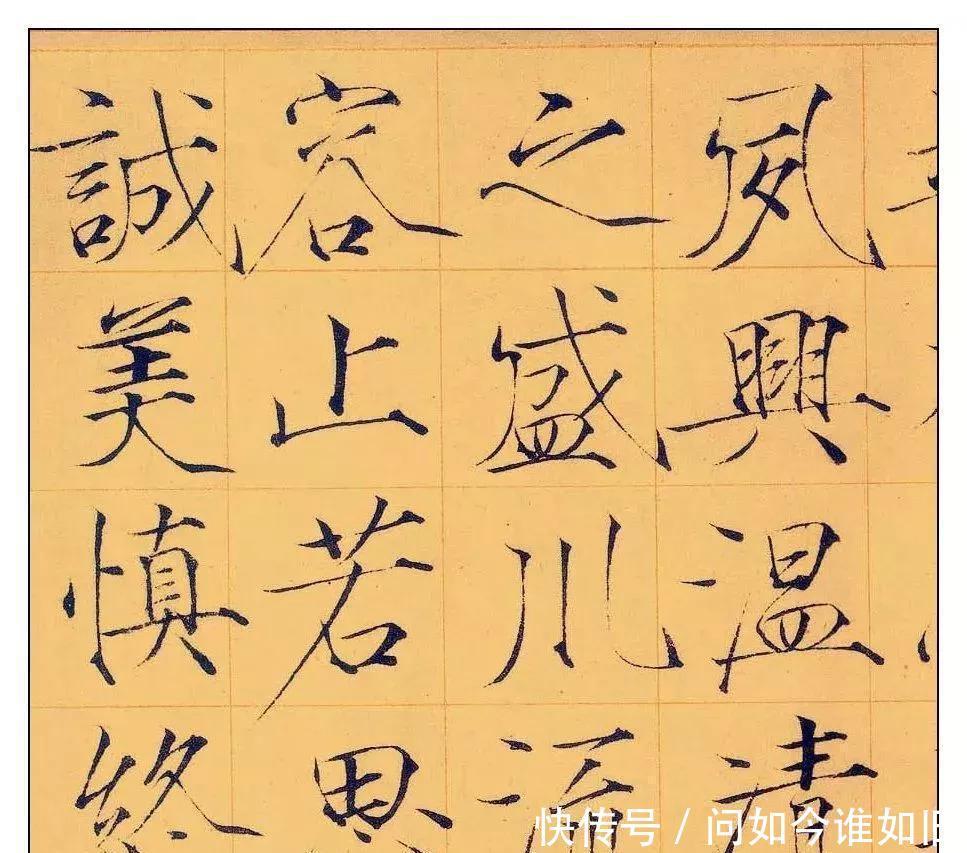 夙興温清
之盛川流
容止若思
誠美慎終
快传号 / 问如今谁如旧